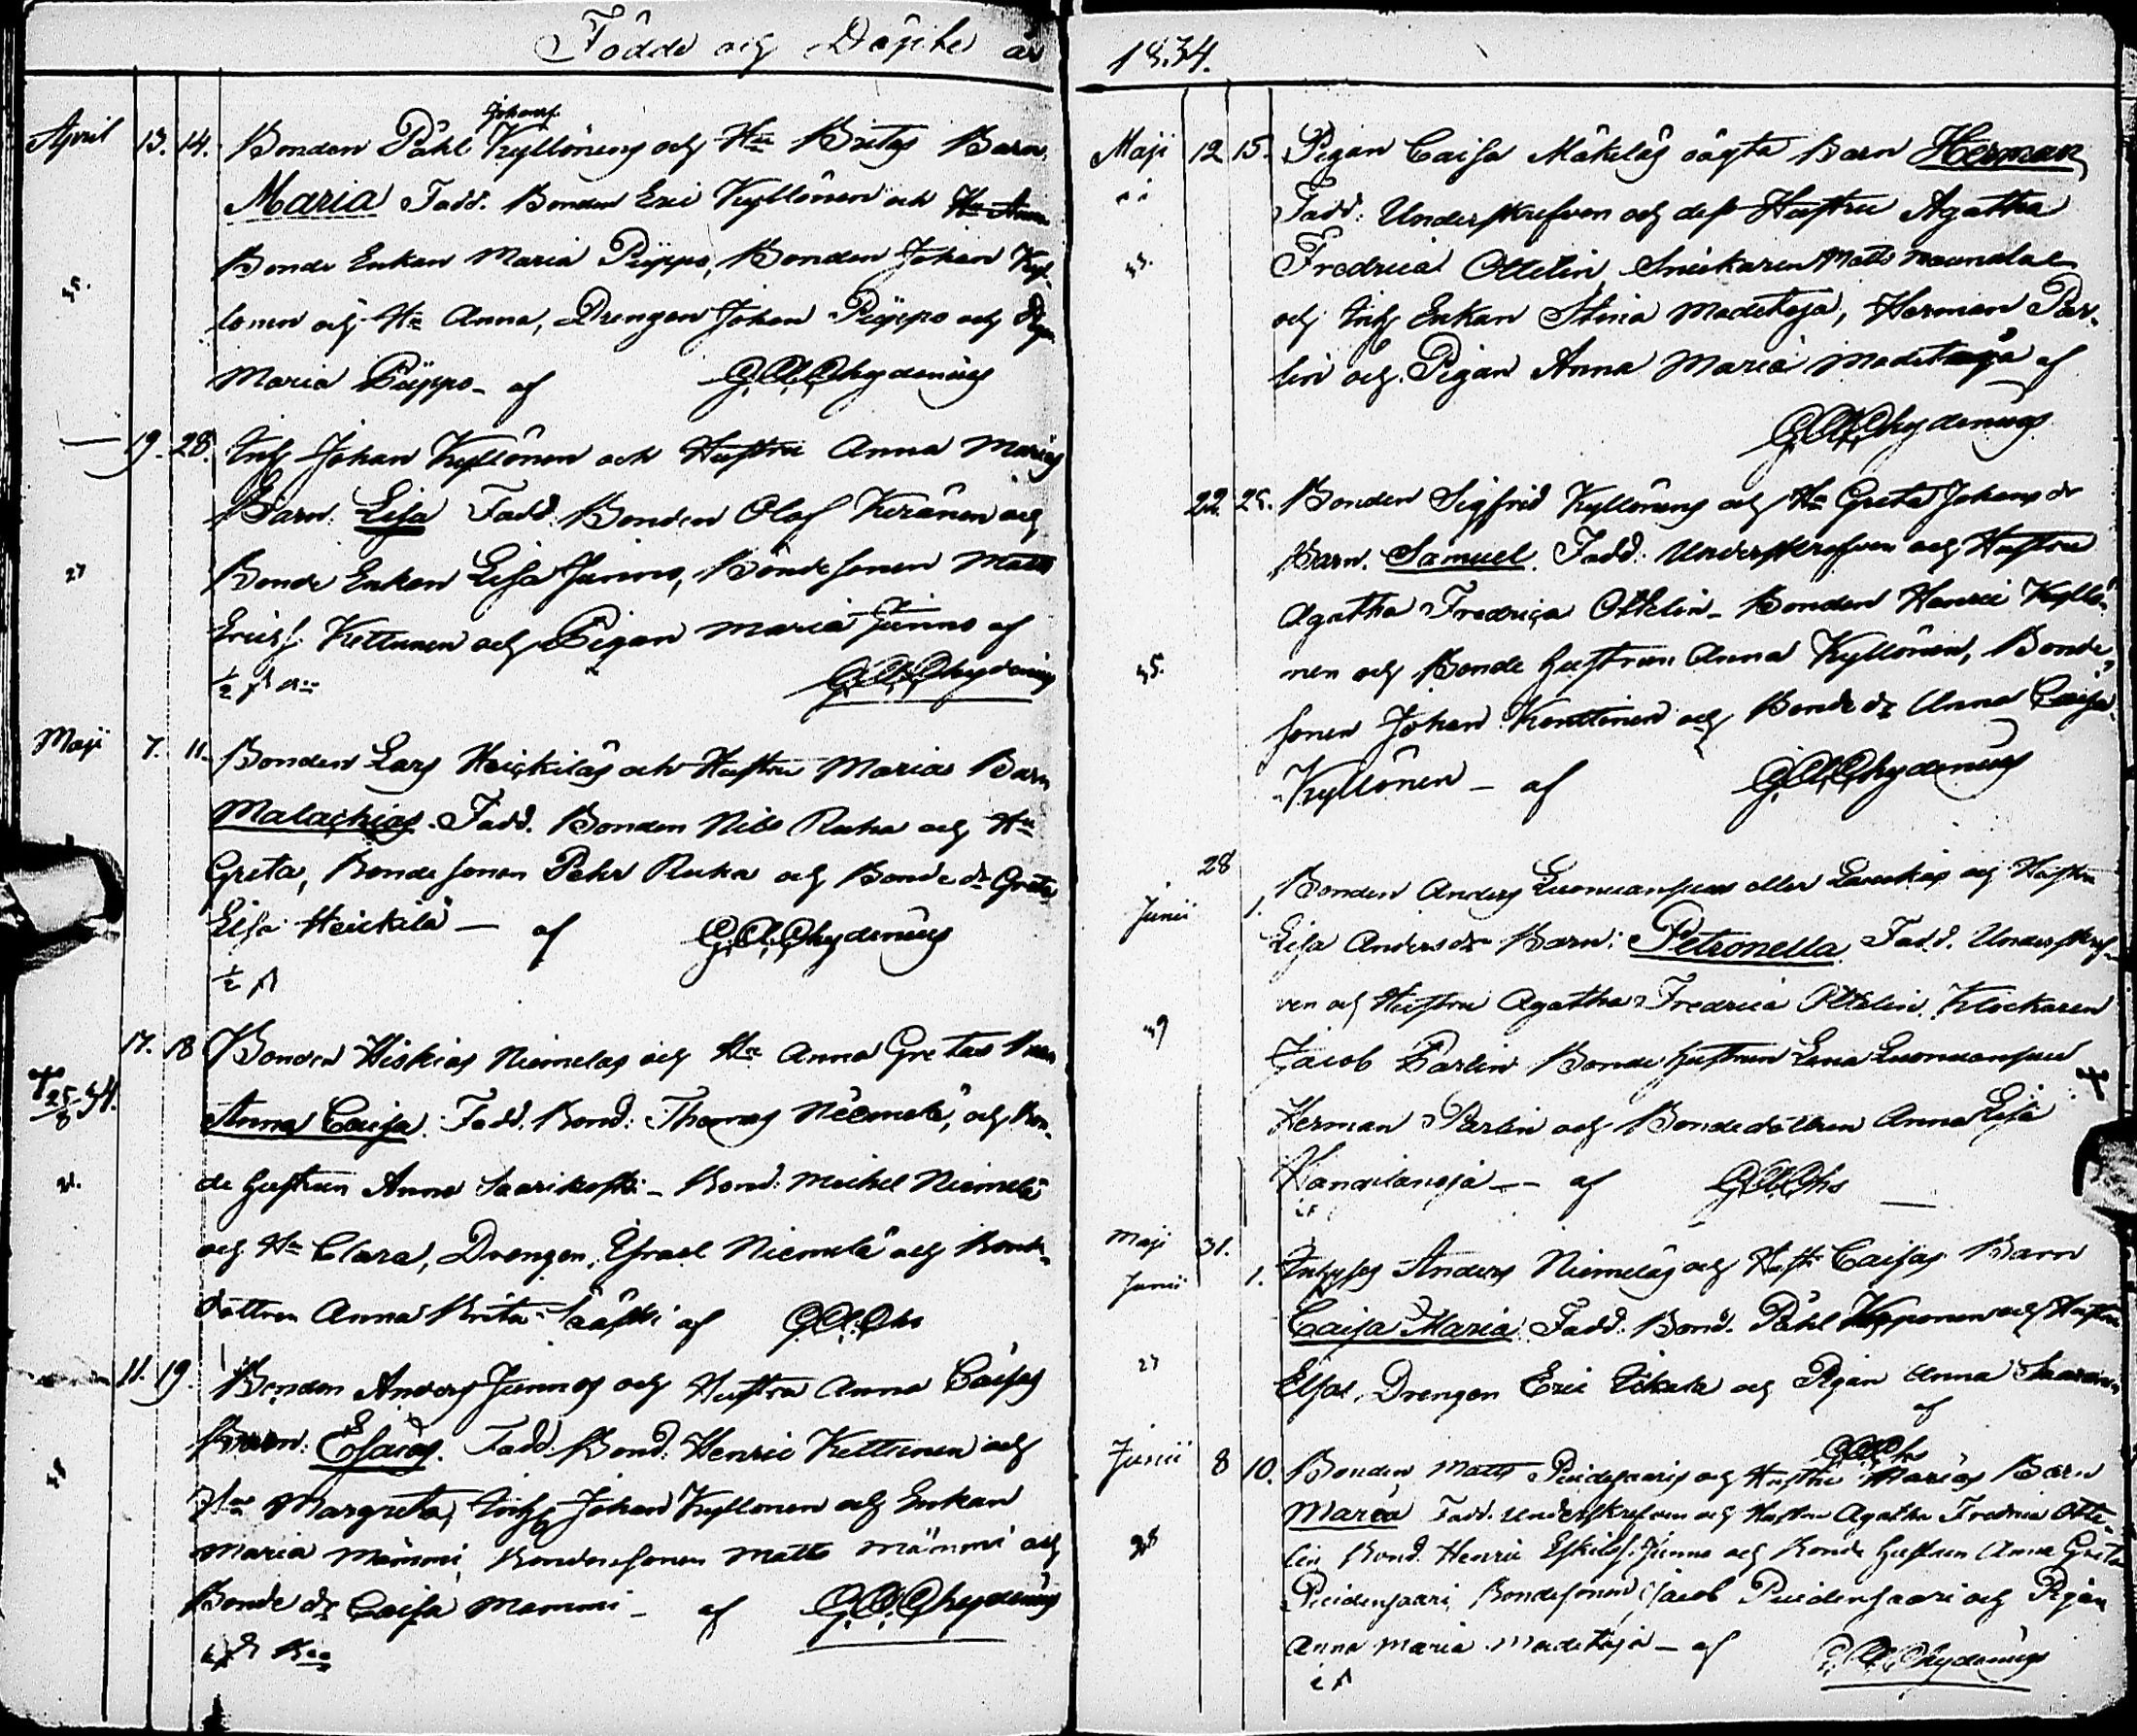 Födde och Döpte år 1834.
April 13. 14. Bonden Påhl Johansf. Kyllönens och Hu Britas Barn
Maria Fadd. Bonden Eric Kyllönen och
Bonde Enkan Maria Piippo, Bonden Johan Kyl-
lönen och Hu Anna, Drengen Johan Piippo och Pig.
Maria Piippo - af G.A. Chydenius
35.
— 19. 28. Inh Johan Kyllönen och Hustru Anna Marias
Barn: Lisa Fadd: Bonden Olof Keränen och
27 Bonde Enkan Lisa Junno, Bonde sonen Matts
Ericsf. Kettunen och Pigan Maria Junno af
G.A. Chydenius
Maji 7. 11. Bonden Lars Heickiläs och Hustru Marias Barn
Malachias. Fadd. Bonden Nils Ruha och Hu
Greta, Bonde sonen Pehr Ruha och Bonde dr Greta
Lisa Heickilä — af G.A. Chydenius
17. 18 Bonden Hiskias Niemelas och Hu Anna Gretas Barn
† 25/8 34.
Anna Caisa. Fadd. Bond: Thomas Niemelä, och Bon-
de hustrun Anna Saarikoski - Bond. Michel Niemelä
och Hu Clara, Drengen Israel Niemelä och Bonde
dottren Anna Brita Sääski af G.A. Chs
11. 19. Bonden Anders Junnos och Hustru Anna Caisas
Barn: Esaias. Fadd. Bond: Henric Kettunen och
Hu Margreta, Inh Johan Kyllönen och Enkan
Maria Mämmi, Bondesonen Matts Mämmi och
Bonde dr Caisa Mämmi - af G.A. Chydenius
Maji 12 15. Pigan Caisa Mäkeläs oägta Barn Herman
Fadd: Underskrefven och dess Hustru Agatha
Fredrica Ottelin Snickaren Matts
och Inh Enkan Stina Madetoja, Herman Par-
lin och Pigan Anna Maria Madetoja af
G.A. Chydenius
22. 25. Bonden Sigfrid Kyllönens och Hu Greta Johans dr
Barn. Samuel. Fadd: Underskrefven och Hustru
Agatha Fredrica Ottelin - Bonden Henric Kyllö-
35. nen och Bonde hustrun Anna Kyllönen, Bonde
sonen Johan Kenttinen och Bonde dr Anna Caisa
Kyllönen - af G.A. Chydenius
28
Junii 1. Bonden Anders Luonuansuus eller och Hustru
Lisa Andersdr Barn: Petronella Fadd. Underskref-
ven och Hustru Agatha Fredrica Ottelin. Klockaren
39 Jacob Parlin Bonde hustrun Lena Luonuansuu
Herman Parlin och Bondedottren Anna Lisa
Kangilaisoja - - af G.A. Chs
Maji 31.
Junii 1. Inhyses Anders Niemeläs och Hustr Caisas Barn
Caisa Maria. Fadd: Bond. Påhl Kepponen och Hustru
27 Elsa, Drengen Eric och Pigan Anna
af
G.A. Chs
Junii 8 10. Bonden Matts Puidesaaris och Hustru Marias Barn
Maria Fadd. underskrefven och Hustru Agatha Fredrica Otte-
lin Bond. Henric Eskilsf. Junno och Bonde hustrun Anna Greta
Puidensaari, Bondesonen Jacob Puidensaari och Pigan
Anna Maria Madetoja - af G.A. Chydenius